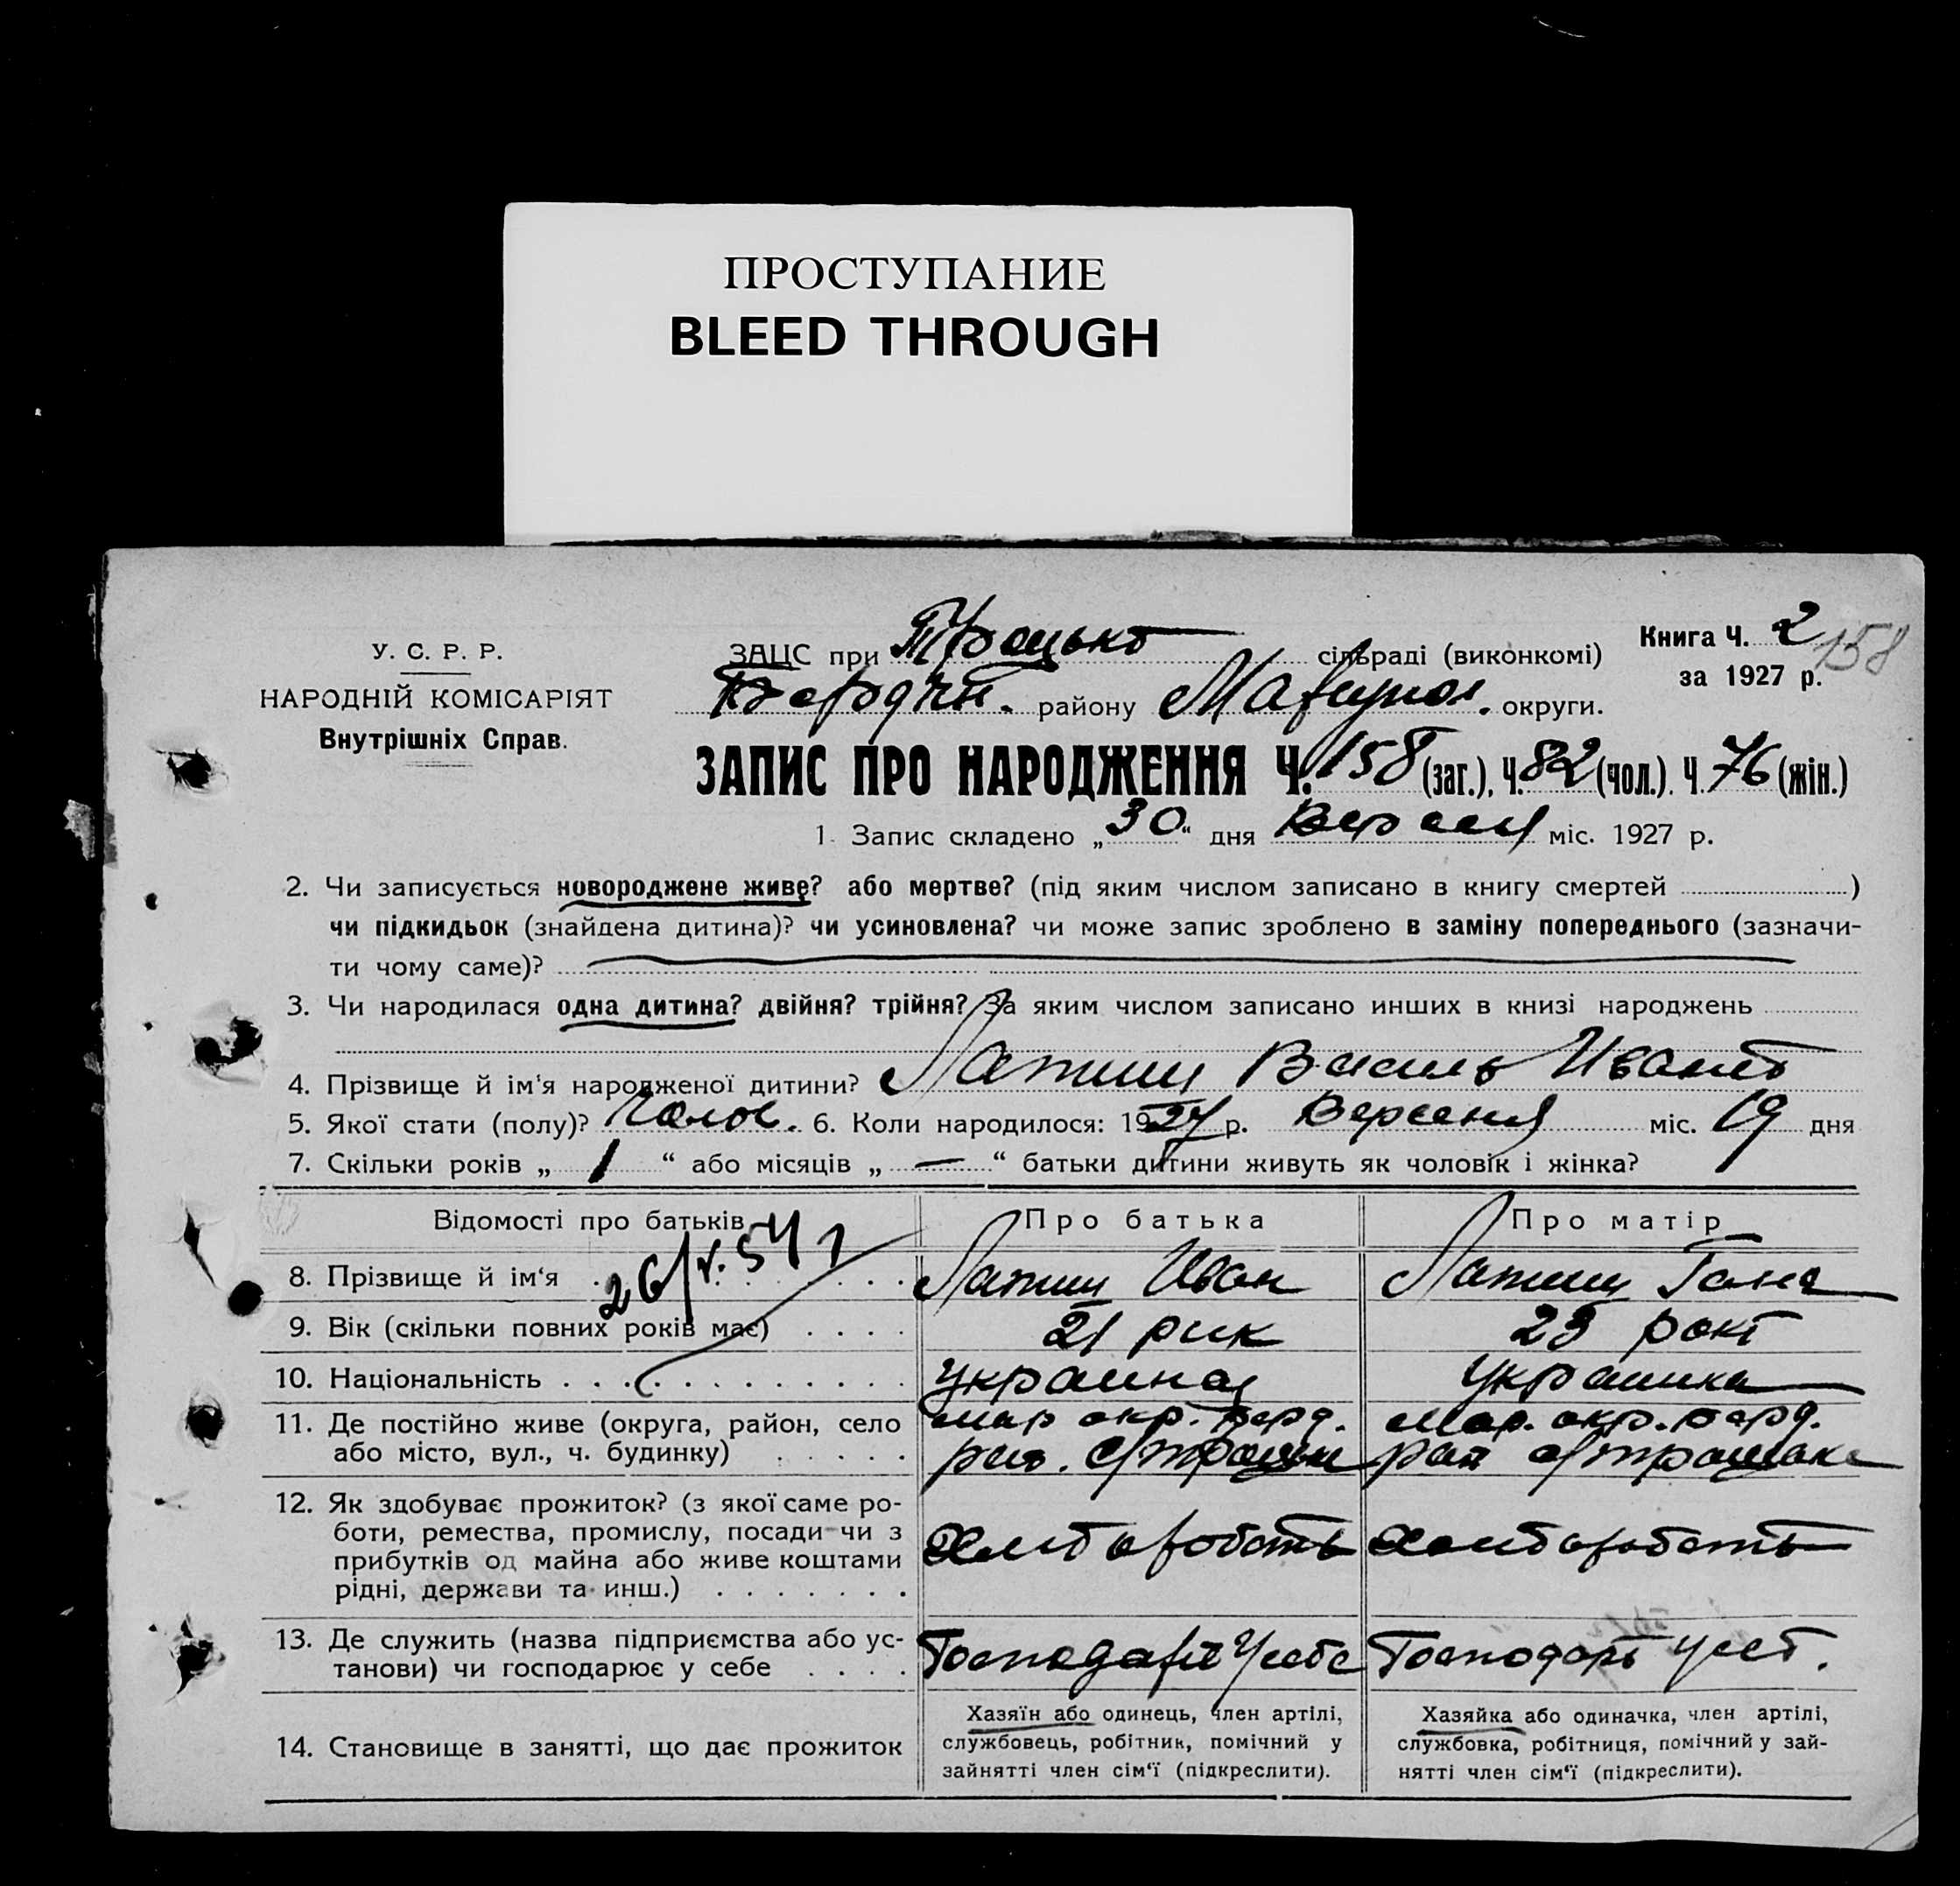 ПРОСТУПАНИЕ
BLEED THROUGH
У. С. Р. Р.
НАРОДНІЙ КОМІСАРІЯТ
Внутрішніх Справ.
ЗАЦС при Троцько сільраді (виконкомі)
Бердян. району Маріупол. округи.
Книга Ч. 2
за 1927 р.
158
ЗАПИС ПРО НАРОДЖЕННЯ Ч. 158 (заг.), Ч. 82 (чол.). Ч. 76 (жін.)
1. Запис складено „30“ дня міс. 1927 р.
2. Чи записується новороджене живе? або мертве? (під яким числом записано в книгу смертей )
чи підкидьок (знайдена дитина)? чи усиновлена? чи може запис зроблено в заміну попереднього (зазначи-
ти чому саме)?
3. Чи народилася одна дитина? двійня? трійня? За яким числом записано инших в книзі народжень
4. Прізвище й ім'я народженої дитини? Лапиц Василь
5. Якої стати (полу)? 6. Коли народилося: 1927 р. Вересня міс. 19 дня
7. Скільки років „ 1 “ або місяців „ — “ батьки дитини живуть як чоловік і жінка?
Відомості про батьків Про батька Про матір
8. Прізвище й ім'я Лапиц Иван Лапиц Гана
9. Вік (скільки повних років має) 21 рик 23 рокі
10. Національність украинец украинка
11. Де постійно живе (округа, район, село мар окр. берд. мар. окр. берд.
або місто, вул., ч. будинку)
12. Як здобуває прожиток? (з якої саме ро-
боти, ремества, промислу, посади чи з
прибутків од майна або живе коштами
рідні, держави та инш.)
13. Де служить (назва підприємства або ус-
танови) чи господарює у себе
14. Становище в занятті, що дає прожиток
Хазяїн або одинець, член артілі,
службовець, робітник, помічний у
зайнятті член сім'ї (підкреслити).
Хазяйка або одиначка, член артілі,
службовка, робітниця, помічний у зай-
нятті член сім'ї (підкреслити).